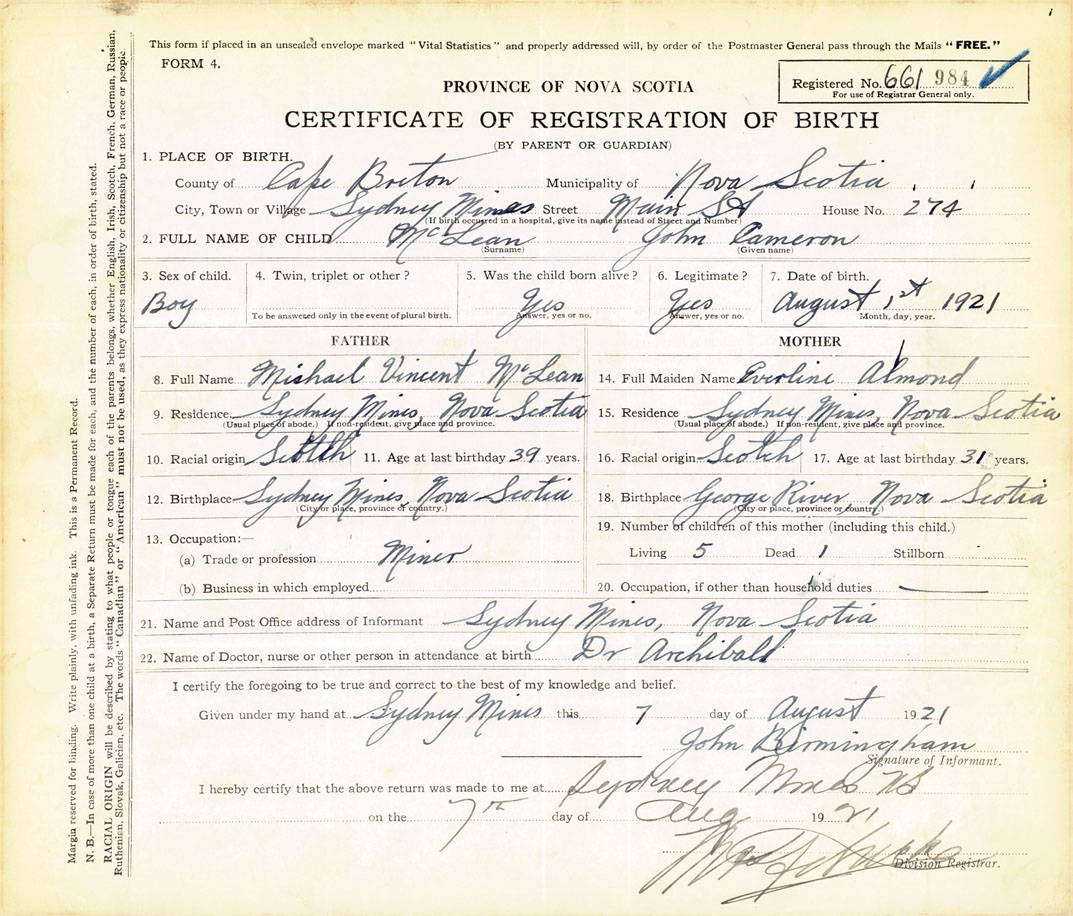 This form if placed in an unsealed envelope marked "Vital Statistics" and properly addressed will, by order of the Postmaster General pass through the Mails "FREE."
FORM 4.
Registered No. 661 984
For use of Registrar General only.
PROVINCE OF NOVA SCOTIA
CERTIFICATE OF REGISTRATION OF BIRTH
(BY PARENT OR GUARDIAN)
1. PLACE OF BIRTH.
County of Cape Breton Municipality of Nova Scotia
City, Town or Village Sydney Mines Street Main St House No. 274
(If birth occurred in a hospital, give its name instead of Street and Number)
2. FULL NAME OF CHILD McLean John Cameron
(Surname) (Given name)
3. Sex of child. 4. Twin, triplet or other? 5. Was the child born alive? 6. Legitimate? 7. Date of birth.
Boy Yes Yes August 1st 1921
To be answered only in the event of plural birth. Answer, yes or no. Answer, yes or no. Month, day, year.
FATHER
8. Full Name Mishael Vincent McLean
9. Residence Sydney Mines, Nova Scotia
(Usual place of abode.) If non-resident, give place and province.
10. Racial origin Scotch 11. Age at last birthday 39 years.
12. Birthplace Sydney Mines, Nova Scotia
(City or place, province or country.)
13. Occupation:—
(a) Trade or profession Miner
(b) Business in which employed
MOTHER
14. Full Maiden Name Everline Almond
15. Residence Sydney Mines, Nova Scotia
(Usual place of abode.) If non-resident, give place and province.
16. Racial origin Scotch 17. Age at last birthday 31 years.
18. Birthplace George River, Nova Scotia
(City or place, province or country.)
19. Number of children of this mother (including this child.)
Living 5 Dead 1 Stillborn
20. Occupation, if other than household duties
21. Name and Post Office address of Informant Sydney Mines, Nova Scotia
22. Name of Doctor, nurse or other person in attendance at birth Dr Archibald
I certify the foregoing to be true and correct to the best of my knowledge and belief.
Given under my hand at Sydney Mines this 7 day of August 1921
John Birmingham
Signature of Informant.
I hereby certify that the above return was made to me at Sydney Mines NS
on the 7th day of Aug 1921
Division Registrar.
Margia reserved for binding. Write plainly, with unfading ink. This is a Permanent Record.
N. B.—In case of more than one child at a birth, a Separate Return must be made for each, and the number of each, in order of birth, stated.
RACIAL ORIGIN will be described by stating to what people or tongue each of the parents belongs, whether English, Irish, Scotch, French, German, Russian,
Ruthenian, Slovak, Galician, etc. The words "Canadian" or "American" must not be used, as they express nationality or citizenship but not a race or people.